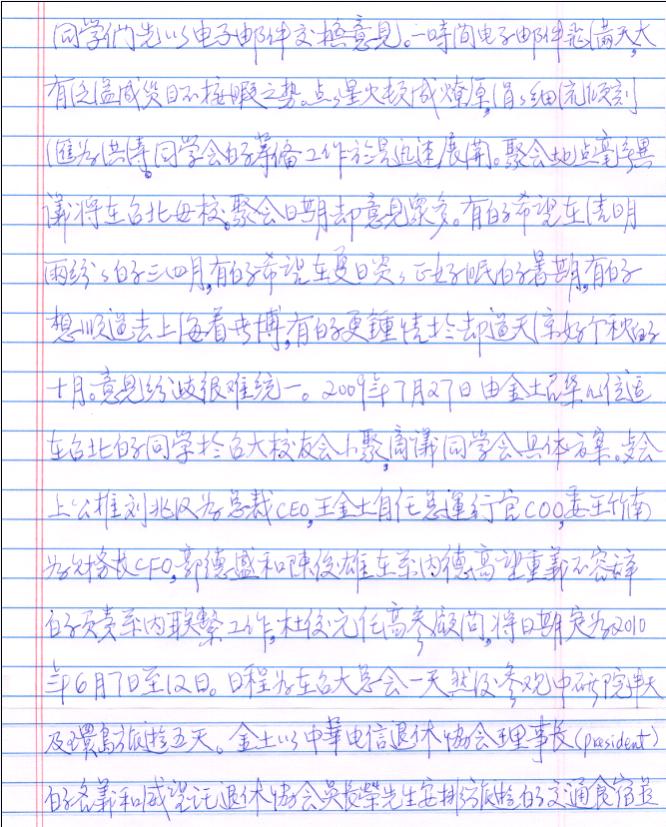 同学們先以电子邮件交換意見。一時間电子邮件飛滿天,大
有泛滥成災目不接暇之势。点点星火顿成燎原,涓涓細流倾刻
匯为洪涛。同学会的筹備工作於是迅速展開。聚会地点毫無異
議将在台北母校。聚会日期却意見眾多。有的希望在清明
雨纷纷的三四月,有的希望在夏日炎炎正好眠的暑期,有的
想順道去上海看世博,有的更鍾情於却道天凉好个秋的
十月。意見纷歧很难统一。2009年7月27日由金土召集几位逗
在台北的同学於台大校友会小聚,商議同学会具体方案。会
上公推刘兆汉为总裁CEO,王金土自任总運行官COO,委王竹南
为財務长CFO,郭德盛和陳俊雄在系内德高望重義不容辞
的负责系内联繫工作,杜俊元任高参顧问,将日期定为2010
年6月7日至12日。日程为在台大总会一天然後参观中研院半天
及環島旅遊五天。金土以中華电信退休协会理事長(president)
的名義和威望託退休协会吳長榮先生安排旅遊的交通食宿並